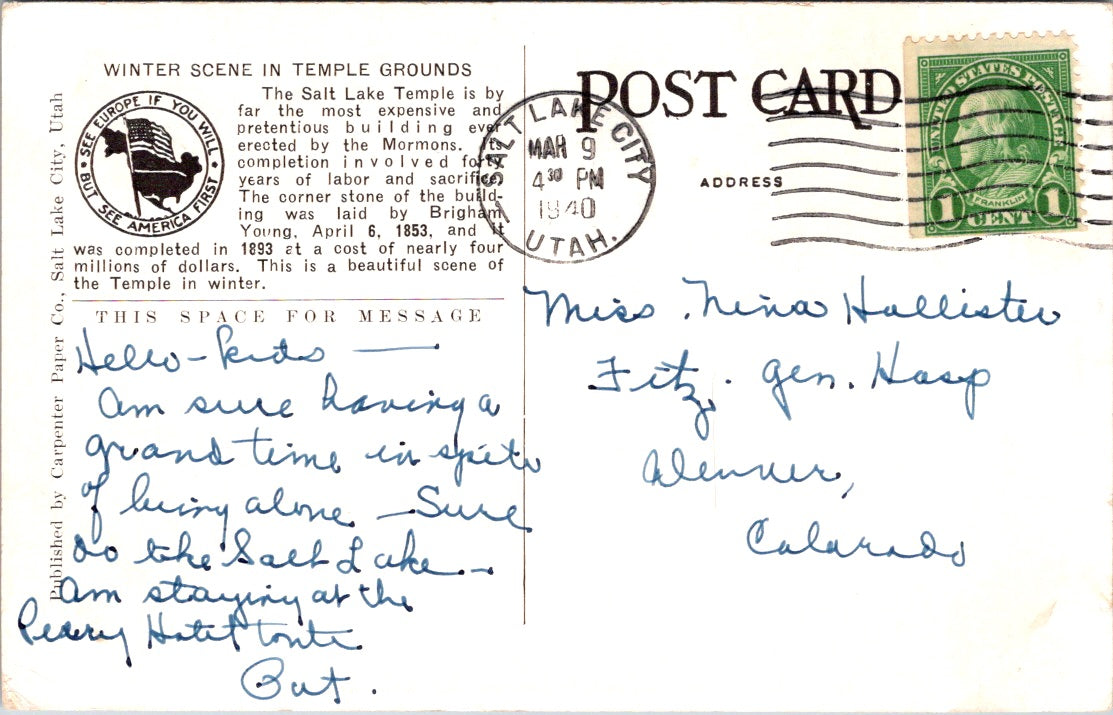 WINTER SCENE IN TEMPLE GROUNDS
SEE EUROPE IF YOU WILL
BUT SEE AMERICA FIRST
The Salt Lake Temple is by
far the most expensive and
pretentious building ever
erected by the Mormons. Its
completion involved forty
years of labor and sacrifice.
The corner stone of the build-
ing was laid by Brigham
Young, April 6, 1853, and it
was completed in 1893 at a cost of nearly four
millions of dollars. This is a beautiful scene of
the Temple in winter.
THIS SPACE FOR MESSAGE
Published by Carpenter Paper Co., Salt Lake City, Utah
Hello-Kids —
Am sure having a
grand time in spite
of being alone — Sure
do like Salt Lake. -
Am staying at the
Peery Hotel tonite
POST CARD
ADDRESS
SALT LAKE CITY
MAR 9
4 30 PM
1940
UTAH.
UNITED STATES POSTAGE
FRANKLIN
1 CENT 1
Miss Nina Hollister
Fitz. Gen. Hosp
Denver,
Colorado